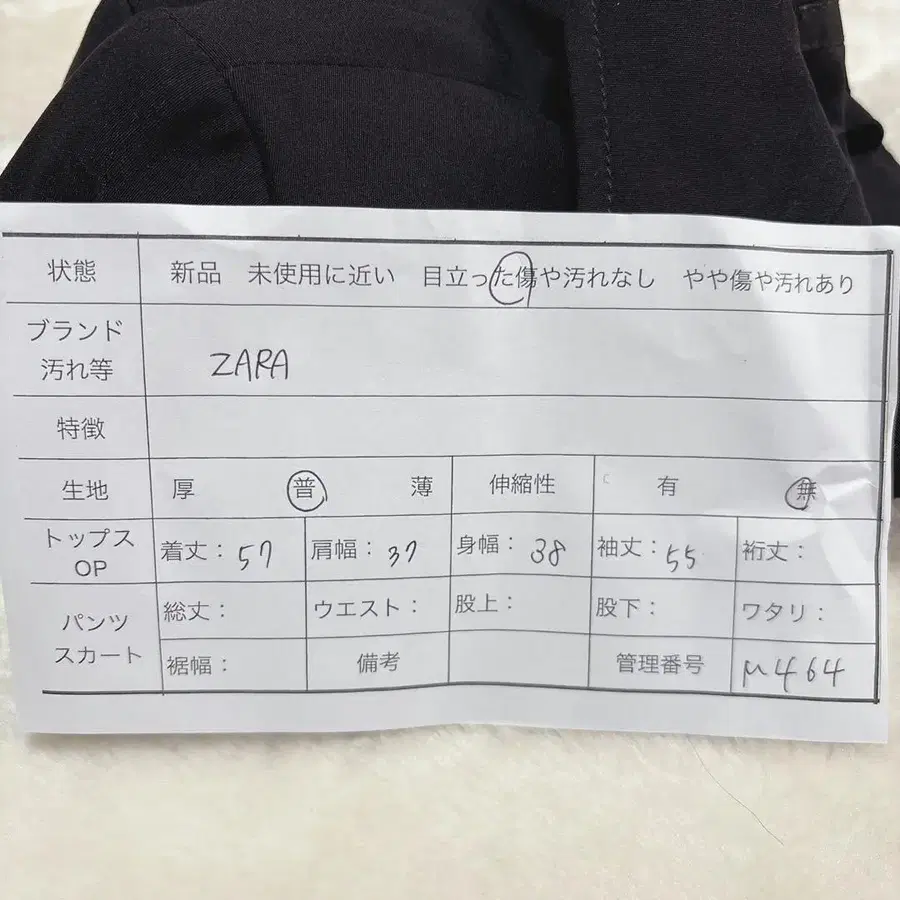 状態 新品 未使用に近い 目立った傷や汚れなし やや傷や汚れあり
ブランド
汚れ等 ZARA
特徴
生地 厚 普 薄 伸縮性 有 無
トップス
OP 着丈：57 肩幅：37 身幅：38 袖丈：55 裄丈：
パンツ
スカート
総丈： ウエスト： 股上： 股下： ワタリ：
裾幅： 備考 管理番号 μ464